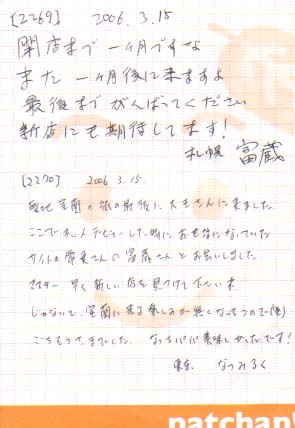 [2269] 2006.3.15
閉店まで一ヶ月ですな
また一ヶ月後に来ますよ
最後までがんばってください
新店にも期待してます!
札幌 富蔵
[2270] 2006 3.15.
聖地室蘭の旅の最後に、大王さんに来ました。
ここでネットデビューした時にお世話になっていた
サイトの常連さんの富蔵さんとお会いしました
マスター、早く新しい店を見つけて下さいネ。
じゃないと、室蘭に来る楽しみが無くなっちゃうので(笑)
ごちそうさまでした。なっちパパ美味しかったです!
東京 なつみるく
patchan